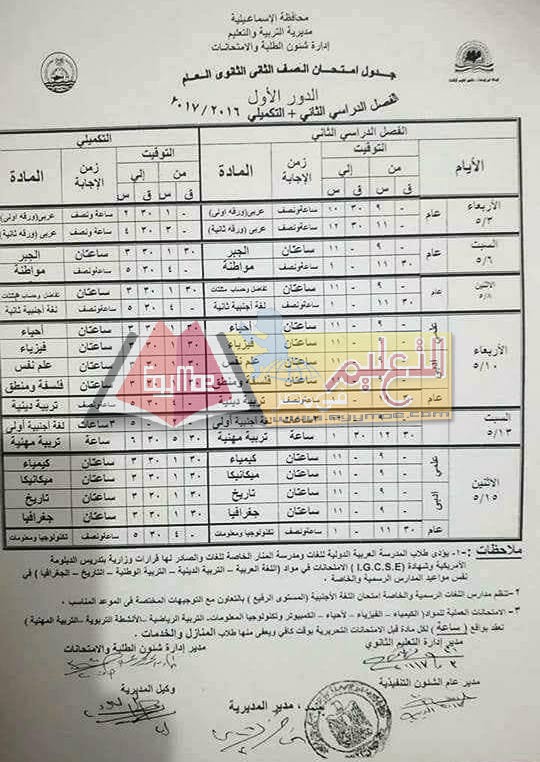 محافظة الإسماعيلية
مديرية التربية والتعليم
إدارة شئون الطلبة والامتحانات
جدول امتحان الصف الثانى الثانوى العام
الدور الأول
الفصل الدراسي الثاني + التكميلي ٢٠١٧/٢٠١٦
الفصل الدراسي الثاني التكميلي
الأيام التوقيت زمن الإجابة المادة التوقيت زمن الإجابة المادة
من إلي من إلي
ق س ق س ق س ق س
الأربعاء ٥/٣ عام - ٩ ٣٠ ١٠ ساعة ونصف عربى (ورقه اولى) - ١ ٣٠ ٢ ساعة ونصف عربى (ورقه اولى)
- ١١ ٣٠ ١٢ ساعة ونصف عربى (ورقة ثانية) - ٣ ٣٠ ٤ ساعة ونصف عربى (ورقة ثانية)
السبت ٥/٦ عام - ٩ - ١١ ساعتان الجبر ٣٠ ١ ٣٠ ٣ ساعتان الجبر
٣٠ ١١ - ١ ساعة ونصف مواطنة - ٤ ٣٠ ٥ ساعة ونصف مواطنة
الاثنين ٥/٨ عام - ٩ - ١١ ساعتان تفاضل وحساب مثلثات ٣٠ ١ ٣٠ ٣ ساعتان تفاضل وحساب مثلثات
٣٠ ١١ - ١ ساعة ونصف لغة أجنبية ثانية - ٤ ٣٠ ٥ ساعة ونصف لغة أجنبية ثانية
الأربعاء ٥/١٠ علمي - ٩ - ١١ ساعتان أحياء ساعتان أحياء
فيزياء ساعتان فيزياء
أدبى علم نفس ساعتان علم نفس
فلسفة ومنطق ساعتان فلسفة ومنطق
عام تربية دينية تربية دينية
السبت ٥/١٣ عام لغة أجنبية أولى ٣ ساعات لغة أجنبية أولى
٣٠ ١٢ ٣٠ ١ ساعة تربية مهنية ٣٠ ٥ ٣٠ ٦ ساعة تربية مهنية
الاثنين ٥/١٥ علمي - ٩ - ١١ ساعتان كيمياء ٣٠ ١ ٣٠ ٣ ساعتان كيمياء
- ٩ - ١١ ساعتان ميكانيكا ٣٠ ١ ٣٠ ٣ ساعتان ميكانيكا
ادبى - ٩ - ١١ ساعتان تاريخ ٣٠ ١ ٣٠ ٣ ساعتان تاريخ
- ٩ - ١١ ساعتان جغرافيا ٣٠ ١ ٣٠ ٣ ساعتان جغرافيا
عام ٣٠ ١١ - ١ ساعة ونصف تكنولوجيا ومعلومات - ٤ ٣٠ ٥ ساعة ونصف تكنولوجيا ومعلومات
التعليم
Egymoe
www.egymoe.com
ملاحظات :- ١- يؤدى طلاب المدرسة العربية الدولية للغات ومدرسة المنار الخاصة للغات والصادر لها قرارات وزارية بتدريس الدبلومة
الأمريكية وشهادة (I.G.C.S.E) الامتحانات فى مواد (اللغة العربية – التربية الدينية – التربية الوطنية – التاريخ – الجغرافيا) في
نفس مواعيد المدارس الرسمية والخاصة .
٢- تنظم مدارس اللغات الرسمية والخاصة امتحان اللغة الأجنبية (المستوى الرفيع) بالتعاون مع التوجيهات المختصة في الموعد المناسب .
٣- الامتحانات العملية للمواد (الكيمياء – الفيزياء – الأحياء – الكمبيوتر وتكنولوجيا المعلومات- التربية الرياضية –الأنشطة التربوية –التربية المهنية)
تعقد بواقع (ساعة) لكل مادة قبل الامتحانات التحريرية بوقت كافي ويعفى منها طلاب المنازل والخدمات .
مدير إدارة التعليم الثانوي مدير إدارة شئون الطلبة والامتحانات
مدير عام الشئون التنفيذية وكيل المديرية
مدير المديرية